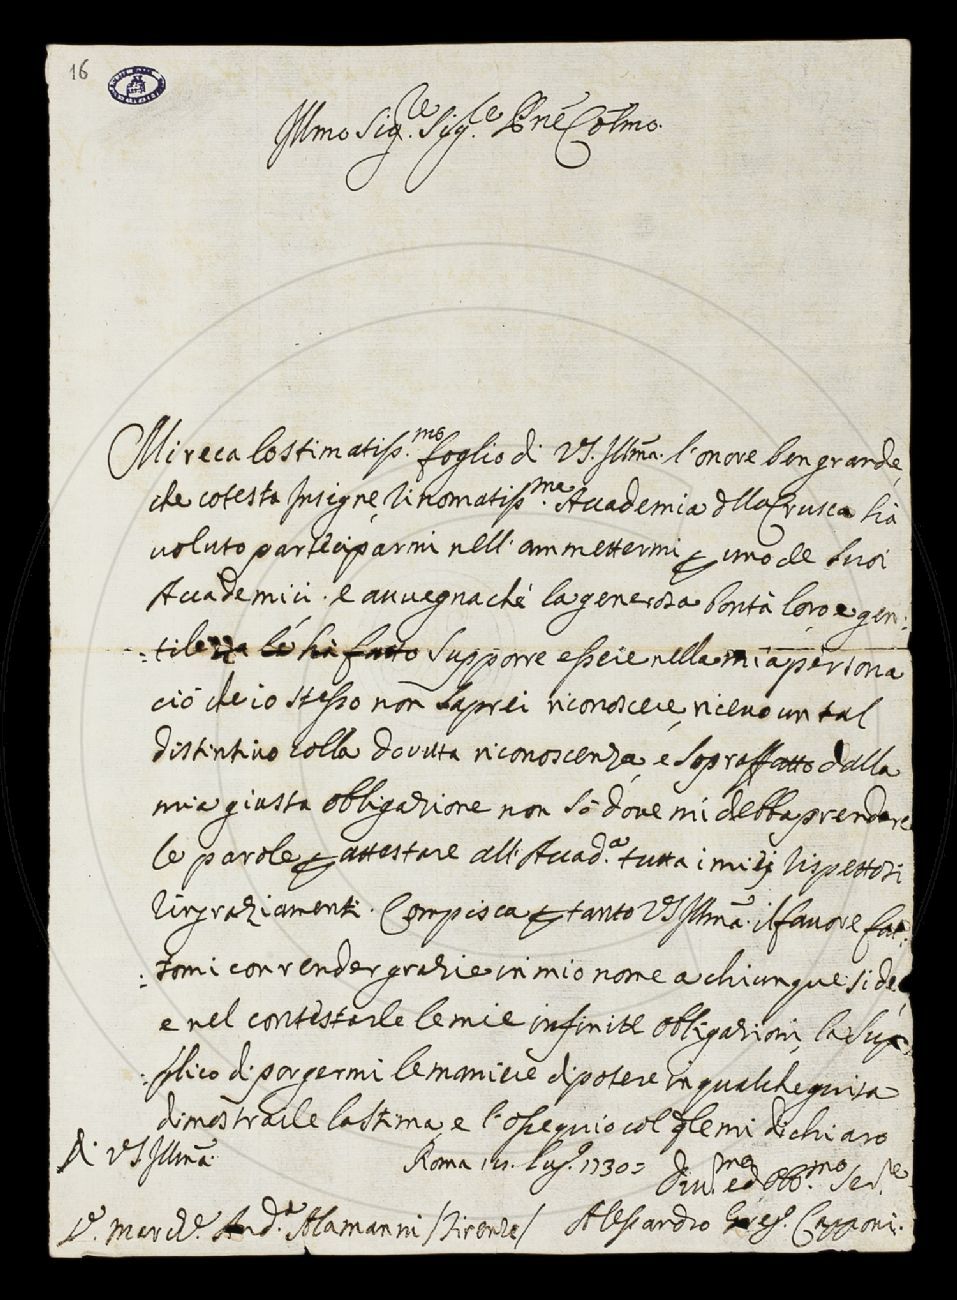 16
Illmo Sig.re Sig.re Pne Colmo
Mi reca lo stimatiss.mo foglio di VS. Illma. l'onore ben grande,
che cotesta Insigne, e rinomatiss.ma Accademia dlla Crusca hà
voluto participarmi nell'ammettermi p uno de suoi
Accademici. e avvegnachè la generosa bontà loro e gen:
:tilezza le hà fatto supporre essere nella mia persona
ciò che io stesso non saprei riconoscere, ricevo un tal
distintivo colla dovuta riconoscenza, e sopraffatto dalla
mia giusta obbligazione non sò dove mi debba prendere
le parole p attestare all'Accad.a tutta i miei rispettosi
ringraziamenti. Compisca p tanto VS Illma. il favore fat:
:tomi con render grazie in mio nome a chiunque si de
e nel contestarle le mie infinite obbligazioni, la sup:
:plico di porgermi le maniere di potere in qualche guisa
dimostrarle la stima, e l'ossequio col qle mi dichiaro
Di VS Illma
Roma Lug.o 1730
Div.mo ed Obb.mo Ser.re
S.r March.e And.a Alamanni /Firenze/
Alessandro Greg.o Capponi.